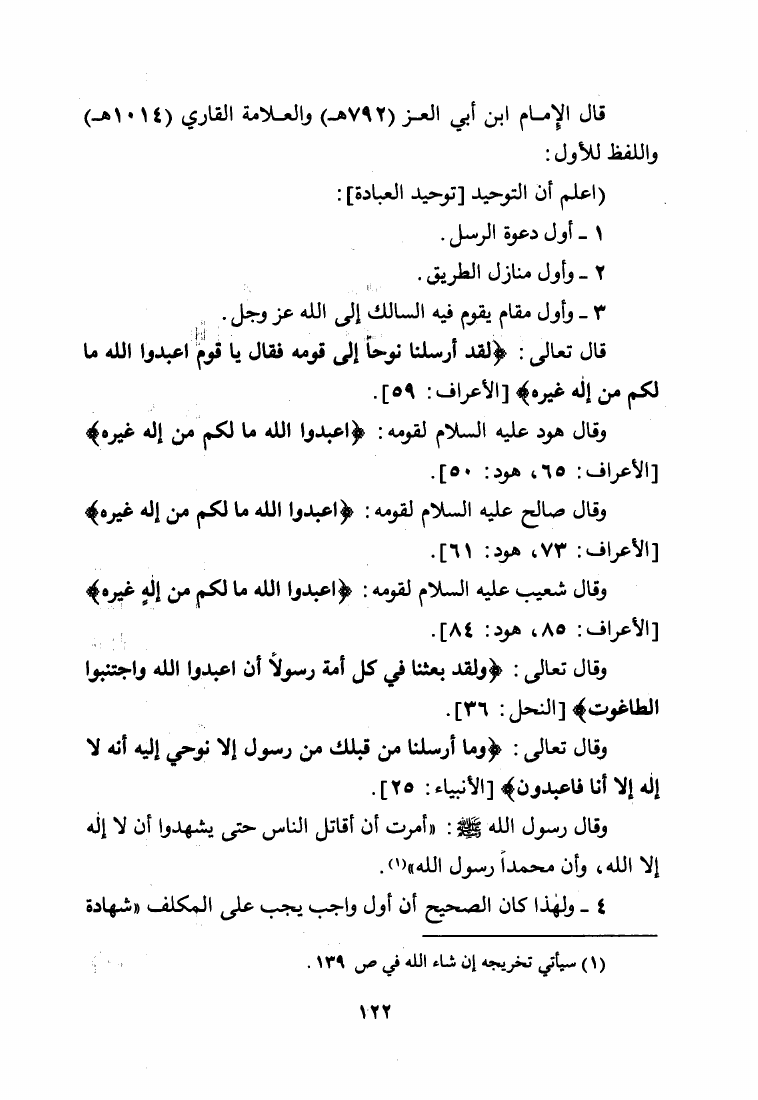 قال الإمام ابن أبي العز (٧٩٢هـ) والعلامة القاري (١٠١٤هـ)
واللفظ للأول:
(اعلم أن التوحيد [توحيد العبادة]:
١ - أول دعوة الرسل.
٢ - وأول منازل الطريق.
٣ - وأول مقام يقوم فيه السالك إلى الله عز وجل.
قال تعالى: ﴿لقد أرسلنا نوحاً إلى قومه فقال يا قوم اعبدوا الله ما
لكم من إلٰه غيره﴾ [الأعراف: ٥٩].
وقال هود عليه السلام لقومه: ﴿اعبدوا الله ما لكم من إله غيره﴾
[الأعراف: ٦٥، هود: ٥٠].
وقال صالح عليه السلام لقومه: ﴿اعبدوا الله ما لكم من إله غيره﴾
[الأعراف: ٧٣، هود: ٦١].
وقال شعيب عليه السلام لقومه: ﴿اعبدوا الله ما لكم من إلٰهٍ غيره﴾
[الأعراف: ٨٥، هود: ٨٤].
وقال تعالى: ﴿ولقد بعثنا في كل أمة رسولاً أن اعبدوا الله واجتنبوا
الطاغوت﴾ [النحل: ٣٦].
وقال تعالى: ﴿وما أرسلنا من قبلك من رسول إلا نوحي إليه أنه لا
إلٰه إلا أنا فاعبدون﴾ [الأنبياء: ٢٥].
وقال رسول الله ﷺ: «أمرت أن أقاتل الناس حتى يشهدوا أن لا إلٰه
إلا الله، وأن محمداً رسول الله»(١).
٤ - ولهٰذا كان الصحيح أن أول واجب يجب على المكلف «شهادة
(١) سيأتي تخريجه إن شاء الله في ص ١٣٩.
١٢٢